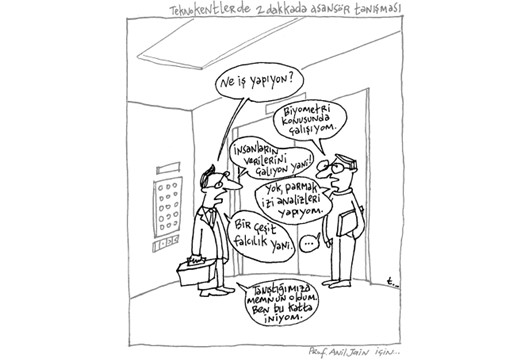 Teknokentlerde 2 dakkada asansör tanışması
Ne iş yapıyon?
Biyometri
konusunda
çalışıyom.
İnsanların
verilerini
çalıyon yani!
Yok, parmak
izi analizleri
yapıyom.
Bir çeşit
falcılık yani.
...
Tanıştığımıza
memnun oldum.
Ben bu katta
iniyom.
t...
Prof. Anil Jain için..